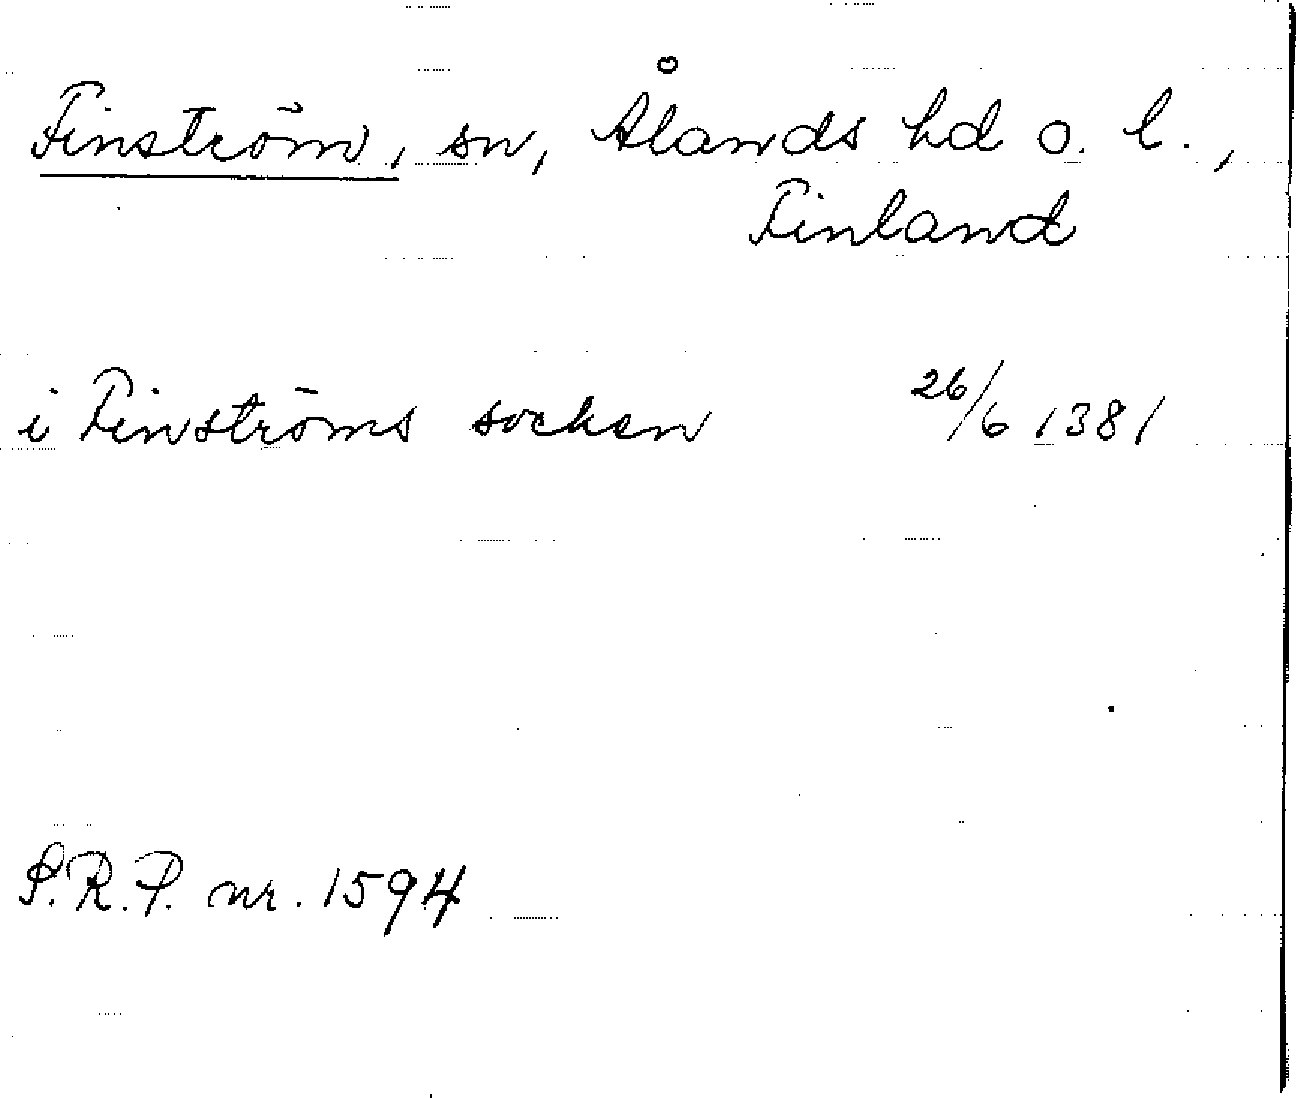 Finström, sn, Ålands hd o. l.,
Finland
i Finströms socken 26/6 1381
S.R.P. nr. 1594